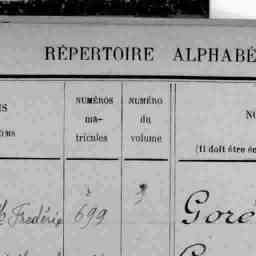 RÉPERTOIRE ALPHABÉ
NUMÉROS
ma-
tricules
NUMÉRO
du
volume
(Il doit être é
Frédéric 699 3 Goré